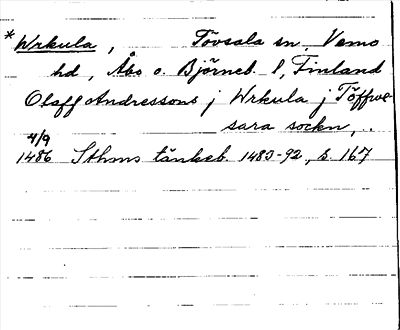 * Wrkula, Tövsala sn, Vemo
hd, Åbo o. Björneb. l, Finland
Olaff Andressons j Wrkula j Töffwe
sara sockn, ..
4/9
1486 Sthms tänkeb. 1483-92, s. 167